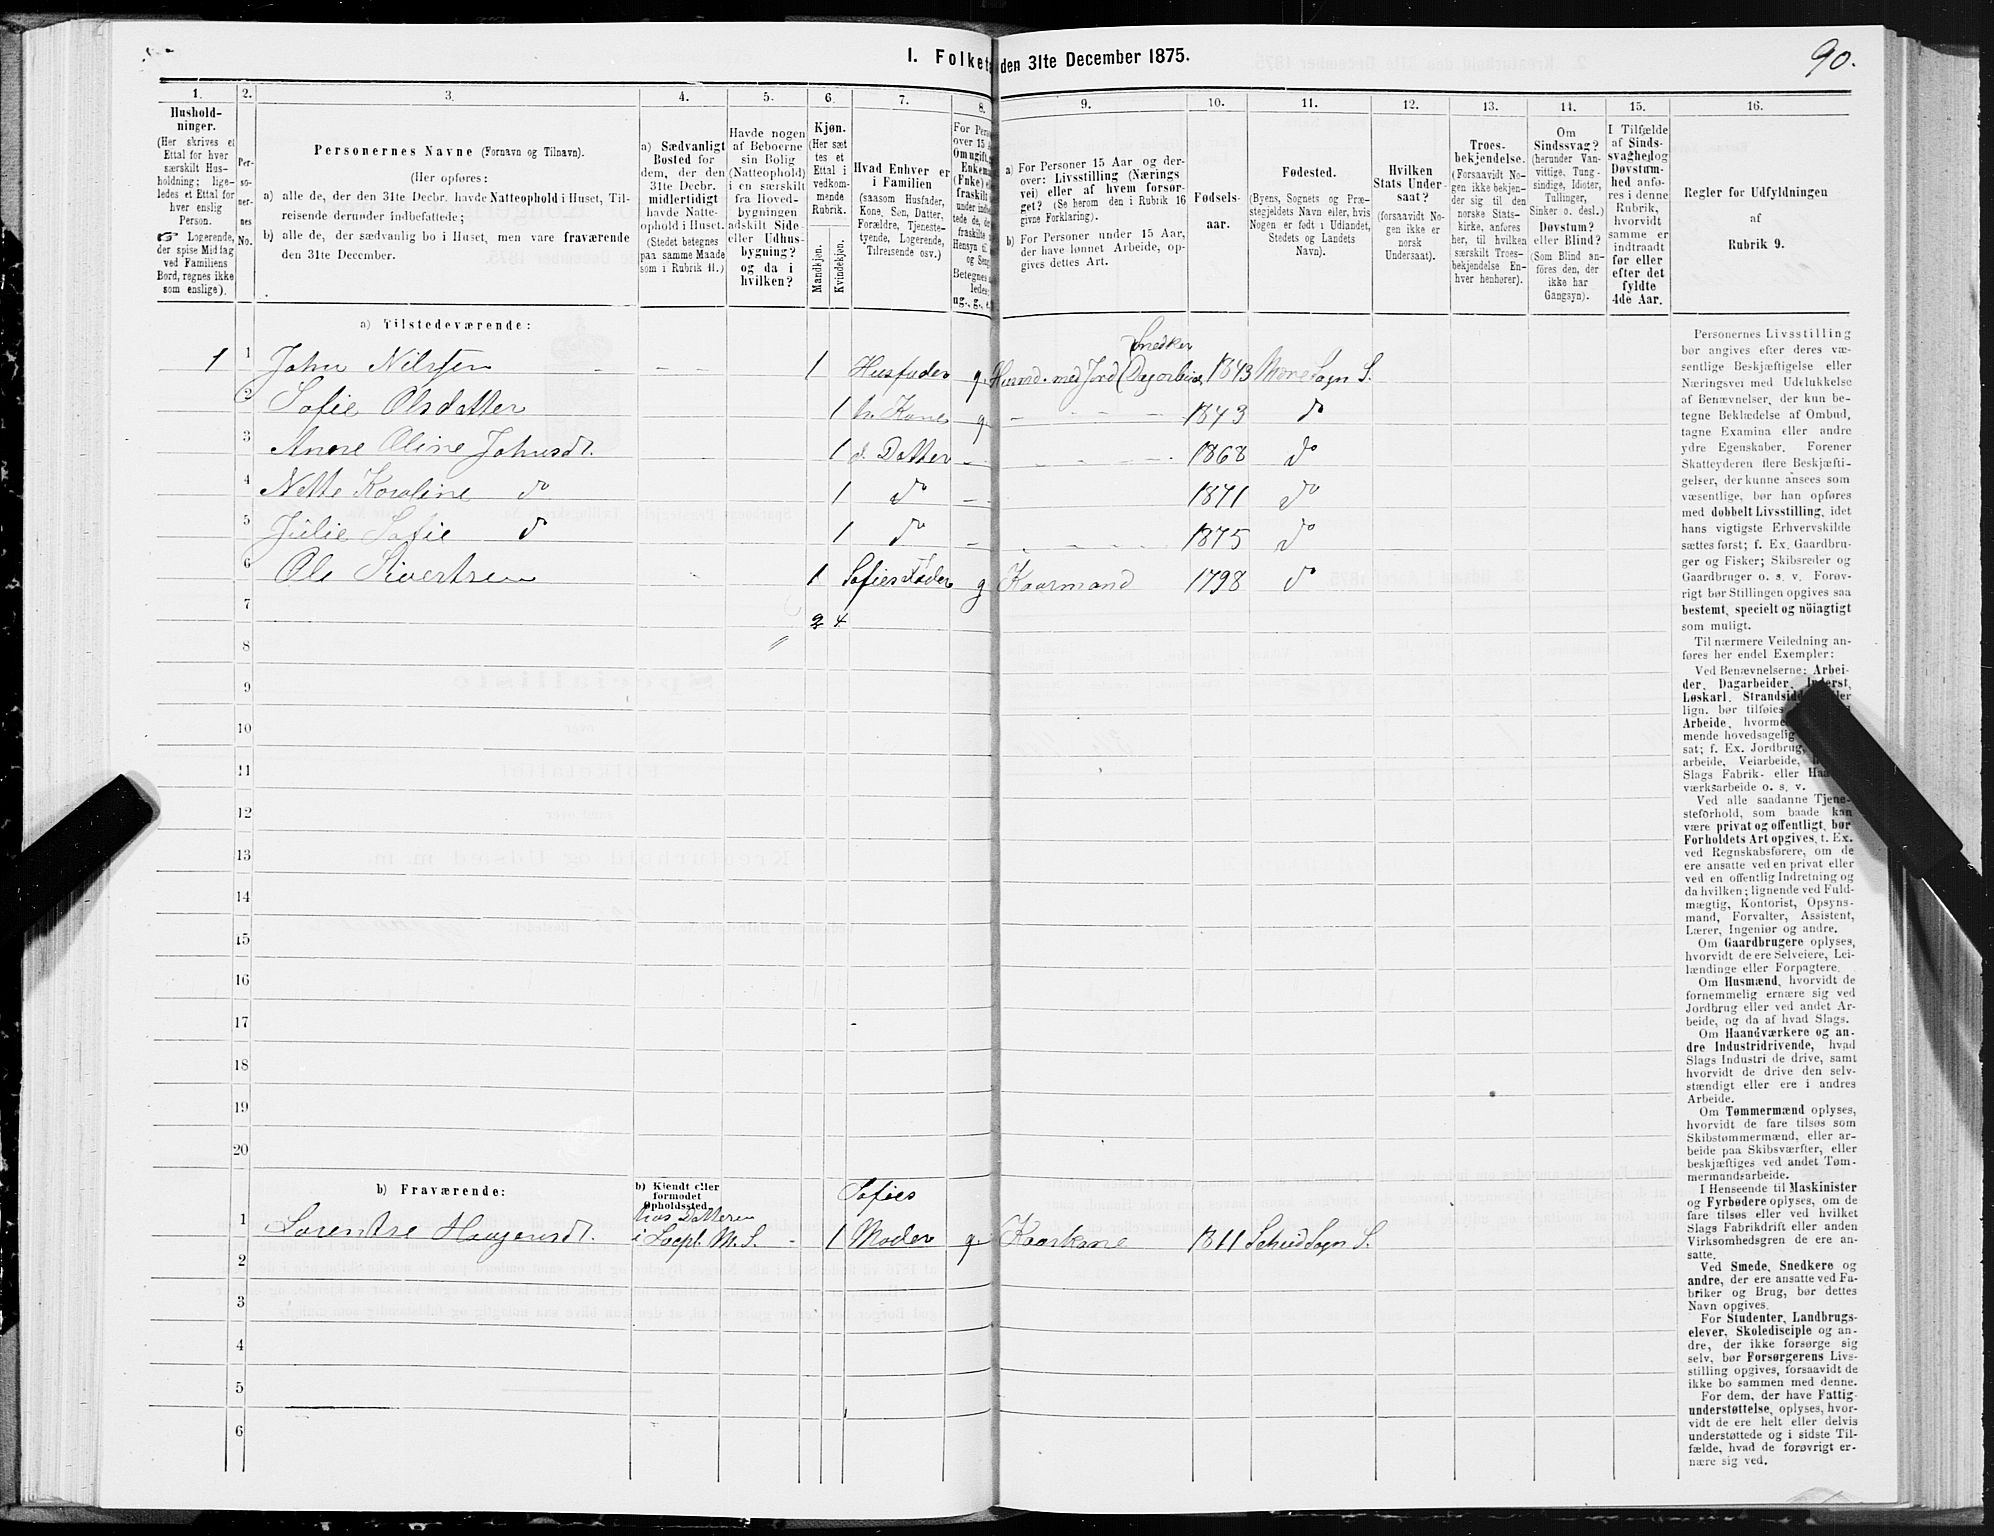 I. Folket den 31te December 1875.
90.
1.
2.
3.
4.
5.
6.
7.
8.
9.
10.
11.
12.
13.
14.
15.
16.
Hushold-
ninger.
(Her skrives et
Ettal for hver
særskilt Hus-
holdning; lige-
ledes et Ettal for
hver enslig
Person.
☞ Logerende,
der spise Middag
ved Familiens
Bord, regnes ikke
som enslige).
Per-
so-
ner-
nes
No.
Personernes Navne (Fornavn og Tilnavn).
(Her opføres:
a) alle de, der den 31te Decbr. havde Natteophold i Huset, Til-
reisende derunder indbefattede;
b) alle de, der sædvanlig bo i Huset, men vare fraværende
den 31te December.
a) Sædvanligt
Bosted for
dem, der den
31te Decbr.
midlertidigt
havde Natte-
ophold i Huset.
(Stedet betegnes
paa samme Maade
som i Rubrik 11.)
Havde nogen
af Beboerne
sin Bolig
(Natteophold)
i en særskilt
fra Hoved-
bygningen
adskilt Side-
eller Udhus-
bygning?
og da i
hvilken?
Kjøn.
(Her sæt
tes et
Ettal i
vedkom-
mende
Rubrik.
Mandkjøn.
Kvindekjøn.
Hvad Enhver er
i Familien
(saasom Husfader,
Kone, Søn, Datter,
Forældre, Tjeneste-
tyende, Logerende,
Tilreisende osv.)
For Pers
over 15 A
Om ugift,
Enkema
(Fnke) e
fraskilt
under indb
tede de, d
fraskilte
Hensyn til
og Seng
Betegnes
ledes:
ug., g., e
a) For Personer 15 Aar og der-
over: Livsstilling (Nærings
vei) eller af hvem forsør-
get? (Se herom den i Rubrik 16
givne Forklaring).
b) For Personer under 15 Aar,
der have lønnet Arbeide, op-
gives dettes Art.
Fødsels-
aar.
Fødested.
(Byens, Sognets og Præ-
stegjeldets Navn eller, hvis
Nogen er født i Udlandet,
Stedets og Landets
Navn).
Hvilken
Stats Under-
saat?
(forsaavidt No-
gen ikke er
norsk
Undersaat).
Troes-
bekjendelse.
(Forsaavidt No-
gen ikke bekjen-
der sig til den
norske Stats-
kirke, anføres
her, til hvilken
særskilt Troes-
bekjendelse En-
hver henhører).
Om
Sindssvag?
(herunder Van-
vittige, Tung-
sindige, Idioter,
Tullinger,
Sinker o. desl.)
Døvstum?
eller Blind?
(Som Blind an-
føres den, der
ikke har
Gangsyn).
I Tilfælde
af Sinds-
svaghed og
Døvstum-
hed anfø-
res i denne
Rubrik,
hvorvidt
samme er
indtraadt
før eller
efter det
fyldte
4de Aar.
Regler for Udfyldningen
af
Rubrik 9.
a) Tilstedeværende:
1 1 John Nilsen 1 Husfader g. Husmd. med Jord (Dagarbeide, Snedker 1843 More Sogn S.
2 Sofie Olsdatter 1 h. Kone g 1843 do
3 Anne Oline Johnsdt. 1 d. Datter 1868 do
4 Nette Karoline do 1 do 1871 do
5 Julie Sofie do 1 do 1875 do
6 Ole Sivertsen 1 Sofies Fader g Kaarmand 1798 do
7 2 4
8
9
10
11
12
13
14
15
16
17
18
19
20
b) Fraværende:
b) Kjendt eller
formodet
Opholdssted.
1 Lorentse Haagensdt. hos Datteren i M. S. 1 Sofies Moder g. Kaarkone 1811 Sogn S.
2
3
4
5
6
Personernes Livsstilling
bør angives efter deres væ-
sentlige Beskjæftigelse eller
Næringsvei med Udelukkelse
af Benævnelser, der kun be-
tegne Beklædelse af Ombud,
tagne Examina eller andre
ydre Egenskaber. Forener
Skatteyderen flere Beskjæfti-
gelser, der kunne ansees som
væsentlige, bør han opføres
med dobbelt Livsstilling, idet
hans vigtigste Erhvervskilde
sættes først; f. Ex. Gaardbru-
ger og Fisker; Skibsreder og
Gaardbruger o. s. v. Forøv-
rigt bør Stillingen opgives saa
bestemt, specielt og nöiagtigt
som muligt.
Til nærmere Veiledning an-
føres her endel Exempler:
Ved Benævnelserne: Arbei-
der, Dagarbeider, Inderst,
Løskarl, Strandsidd ller
lign. bør tilføies
Arbeide, hvorme
mende hovedsagelig
sat; f. Ex. Jordbrug,
arbeide, Veiarbeide,
Slags Fabrik- eller Haa
værksarbeide o. s. v.
Ved alle saadanne Tjene-
steforhold, som baade kan
være privat og offentligt, bør
Forholdets Art opgives, t. Ex.
ved Regnskabsførere, om de
ere ansatte ved en privat eller
ved en offentlig Indretning og
da hvilken; lignende ved Fuld-
mægtig, Kontorist, Opsyns-
mand, Forvalter, Assistent,
Lærer, Ingeniør og andre.
Om Gaardbrugere oplyses,
hvorvidt de ere Selveiere, Lei-
lændinge eller Forpagtere.
Om Husmænd, hvorvidt de
fornemmelig ernære sig ved
Jordbrug eller ved andet Ar-
beide, og da af hvad Slags.
Om Haandværkere og an-
dre Industridrivende, hvad
Slags Industri de drive, samt
hvorvidt de drive den selv-
stændigt eller ere i andres
Arbeide.
Om Tømmermænd oplyses,
hvorvidt de fare tilsøs som
Skibstømmermænd, eller ar-
beide paa Skibsværfter, eller
beskjæftiges ved andet Tøm-
mermandsarbeide.
I Henseende til Maskinister
og Fyrbødere oplyses, om de
fare tilsøs eller ved hvilket
Slags Fabrikdrift eller anden
Virksomhedsgren de ere an-
satte.
Ved Smede, Snedkere og
andre, der ere ansatte ved Fa-
briker og Brug, bør dettes
Navn opgives.
For Studenter, Landbrugs-
elever, Skoledisciple og an-
dre, der ikke forsørge sig
selv, bør Forsørgerens Livs-
stilling opgives, forsaavidt de
ikke bo sammen med denne.
For dem, der have Fattig-
understøttelse, oplyses, hvor-
vidt de ere helt eller delvis
understøttede og i sidste Til-
fælde, hvad de forøvrigt er-
nære sig ved.